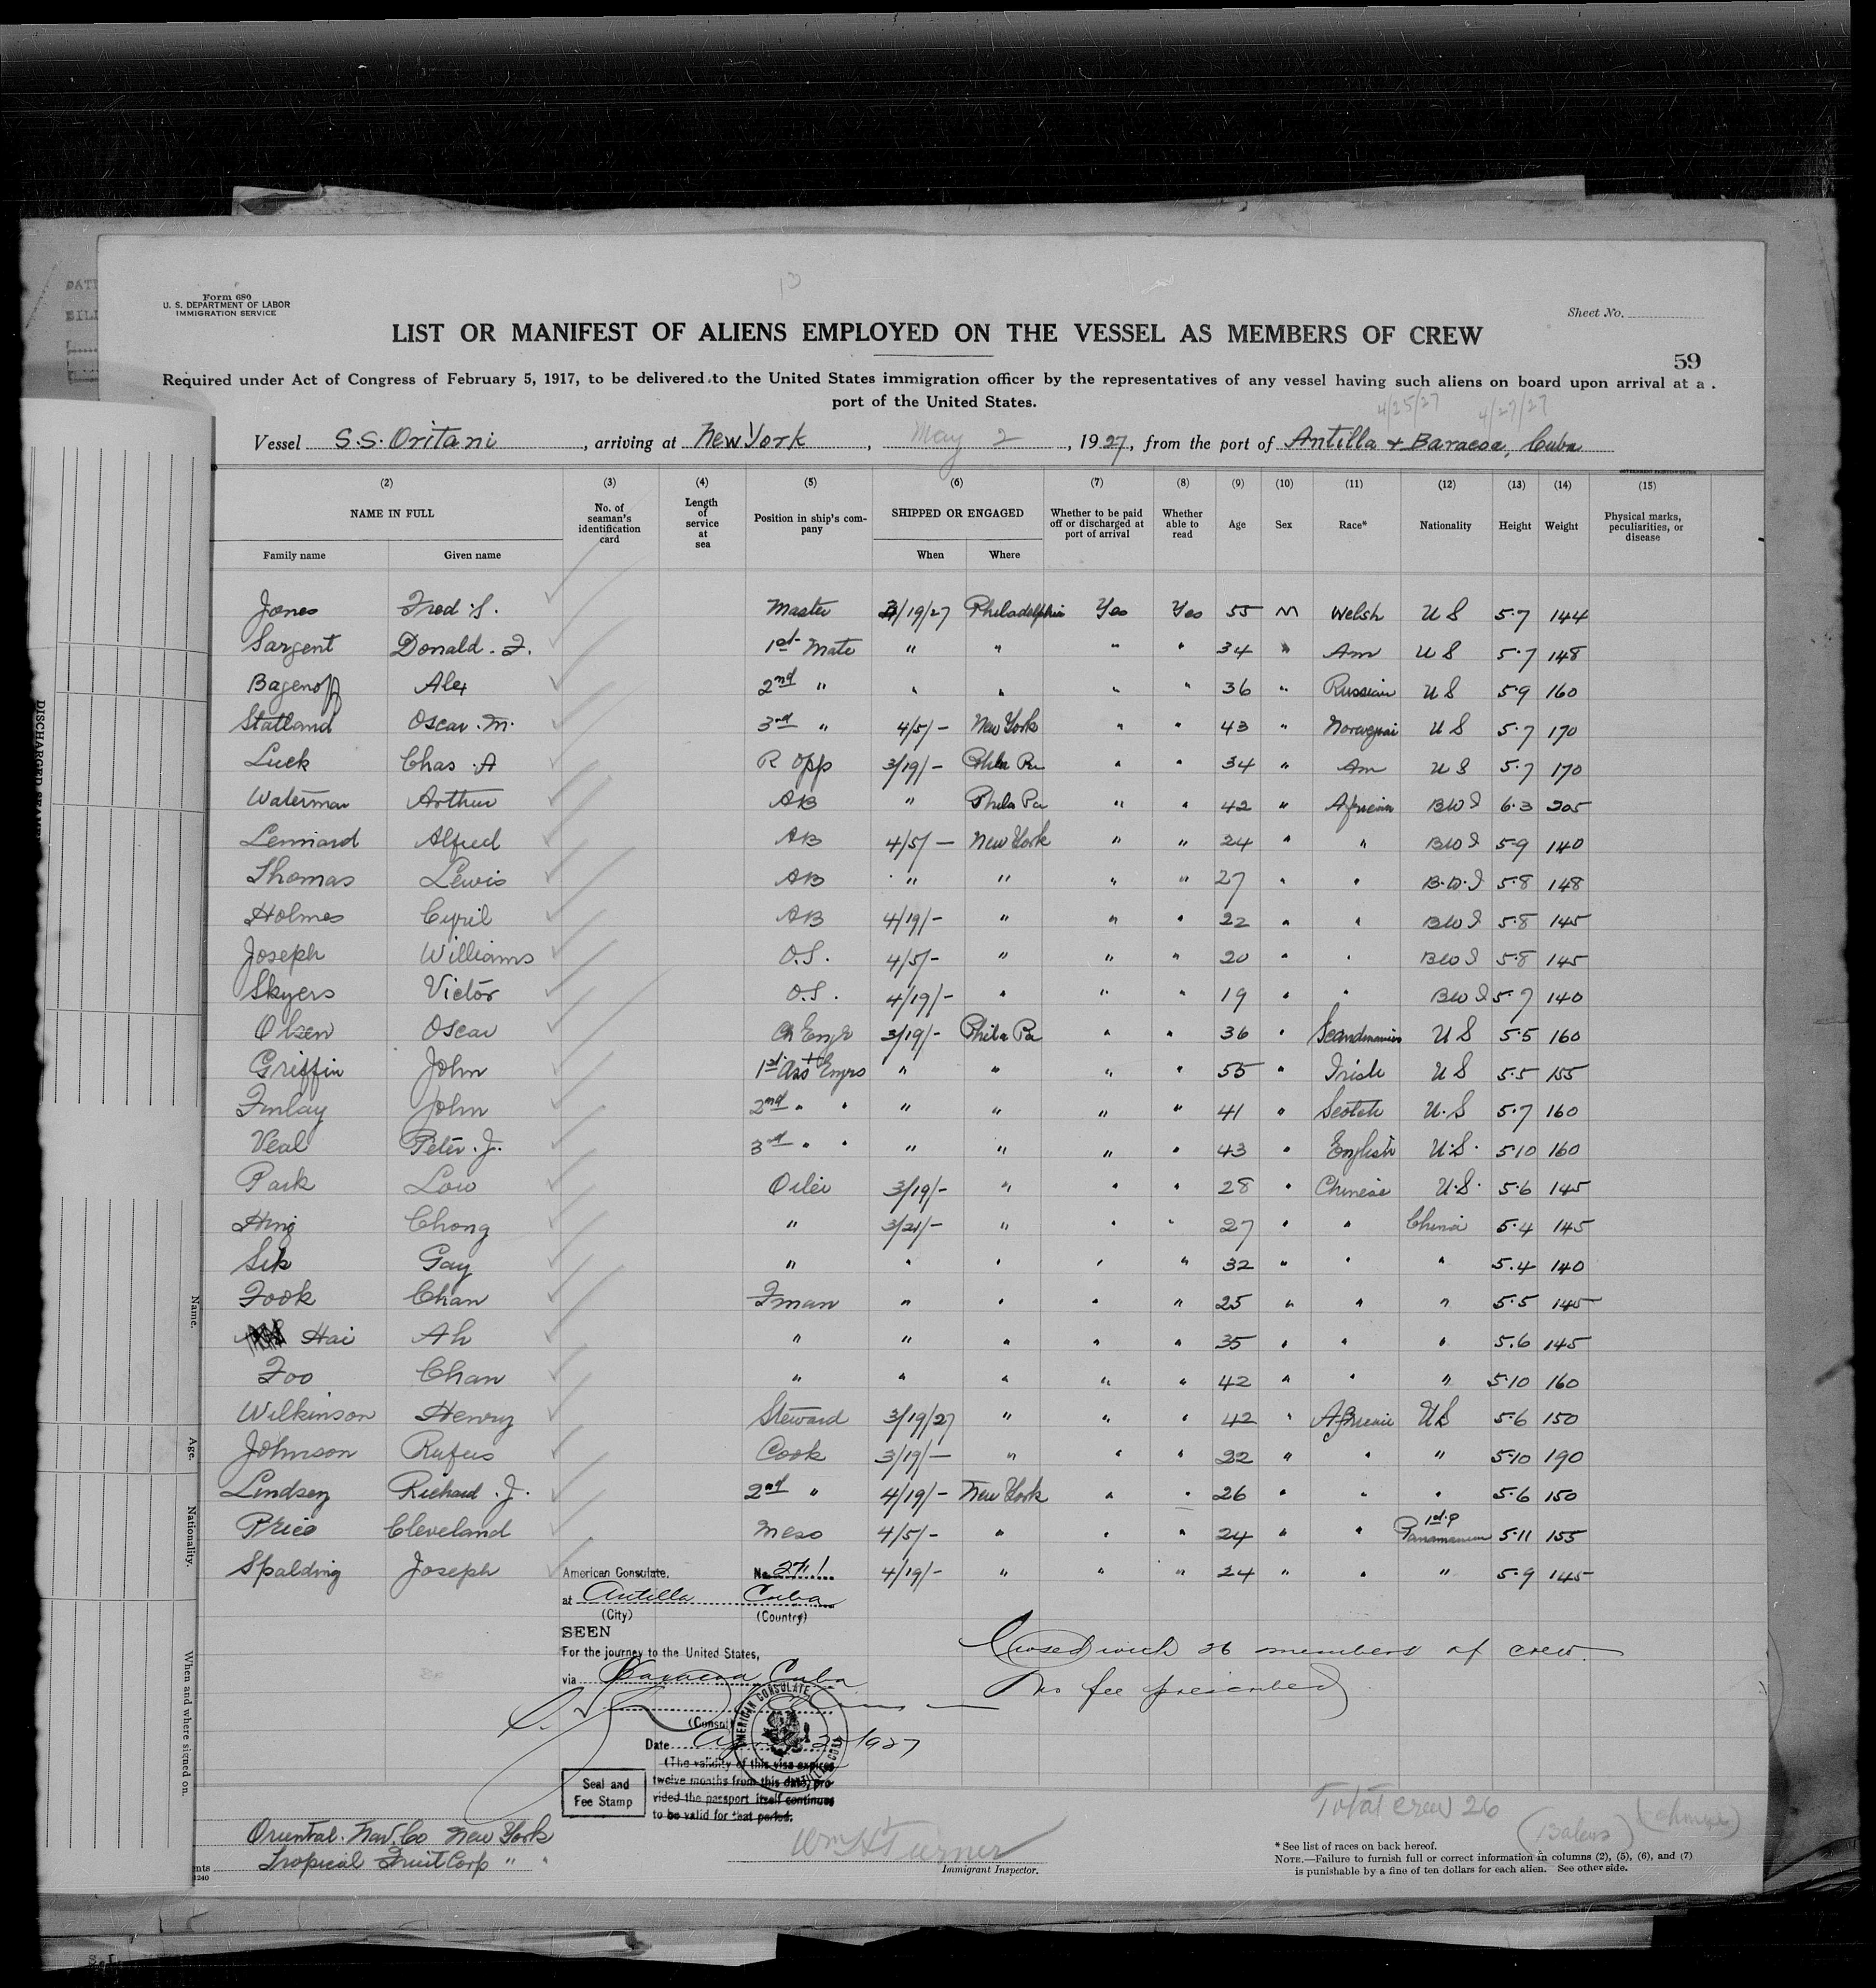 13
Form 680
U. S. DEPARTMENT OF LABOR
IMMIGRATION SERVICE
Sheet No.
LIST OR MANIFEST OF ALIENS EMPLOYED ON THE VESSEL AS MEMBERS OF CREW
59
Required under Act of Congress of February 5, 1917, to be delivered to the United States immigration officer by the representatives of any vessel having such aliens on board upon arrival at a
port of the United States.
4/25/27 4/27/27
Vessel S.S. Oritani, arriving at New York, May 2, 1927, from the port of Antilla & Baracoa, Cuba
(2) (3) (4) (5) (6) (7) (8) (9) (10) (11) (12) (13) (14) (15)
NAME IN FULL No. of seaman's identification card Length of service at sea Position in ship's company SHIPPED OR ENGAGED Whether to be paid off or discharged at port of arrival Whether able to read Age Sex Race* Nationality Height Weight Physical marks, peculiarities, or disease
Family name Given name When Where
Jones Fred S. Master 3/19/27 Philadelphia Yes Yes 55 M Welsh U S 5·7 144
Sargent Donald. F. 1st Mate " " " " 34 " Am U S 5·7 148
Bagenoff Alex 2nd " " " " " 36 " Russian U S 5·9 160
Statland Oscar. M. 3rd " 4/5/- New York " " 43 " Norwegian U S 5·7 170
Luck Chas. A R Opp 3/19/- Phila Pa " " 34 " Am U S 5·7 170
Waterman Arthur AB " Phila Pa " " 42 " African BWI 6·3 205
Lenniard Alfred AB 4/5/- New York " " 24 " " BWI 5·9 140
Thomas Lewis AB " " " " 27 " " B.W.I 5·8 148
Holmes Cyril AB 4/19/- " " " 22 " " BWI 5·8 145
Joseph Williams O.S. 4/5/- " " " 20 " " BWI 5·8 145
Skyers Victor O.S. 4/19/- " " " 19 " " BWI 5·7 140
Olsen Oscar Ch Engr 3/19/- Phila Pa " " 36 " Scandinavian U S 5·5 160
Griffin John 1st Asst Engrs " " " " 55 " Irish U S 5·5 155
Finlay John 2nd " " " " " " 41 " Scotch U.S 5·7 160
Veal Peter. J. 3rd " " " " " " 43 " English U.S. 5·10 160
Park Low Oiler 3/19/- " " " 28 " Chinese U.S. 5·6 145
Hing Chong " 3/21/- " " " 27 " " China 5·4 145
Sek Gay " " " " " 32 " " " 5.4 140
Fook Chan Fman " " " " 25 " " " 5·5 145
Hai Ah " " " " " 35 " " " 5.6 145
Foo Chan " " " " " 42 " " " 5·10 160
Wilkinson Henry Steward 3/19/27 " " " 42 " African US 5·6 150
Johnson Rufus Cook 3/19/- " " " 22 " " " 5·10 190
Lindsey Richard. J. 2nd " 4/19/- New York " " 26 " " " 5·6 150
Price Cleveland Mess 4/5/- " " " 24 " " 1st·P Panamanian 5·11 155
Spalding Joseph 4/19/- " " " 24 " " " 5·9 145
American Consulate. No. 271
at Antilla Cuba
(City) (Country)
SEEN
For the journey to the United States,
via Baracoa, Cuba
(Consul)
Date 1927
(The validity of this visa expires
twelve months from this date, pro-
vided the passport itself continues
to be valid for that period.
Seal and
Fee Stamp
AMERICAN CONSULATE
Closed with 26 members of crew.
No fee prescribed
Total crew 26
Oriental. Nav. Co New York
Tropical Fruit Corp " "
Wm H Turner
Immigrant Inspector.
* See list of races on back hereof.
NOTE.—Failure to furnish full or correct information in columns (2), (5), (6), and (7)
is punishable by a fine of ten dollars for each alien. See other side.
Name.
Age.
Nationality.
When and where signed on.